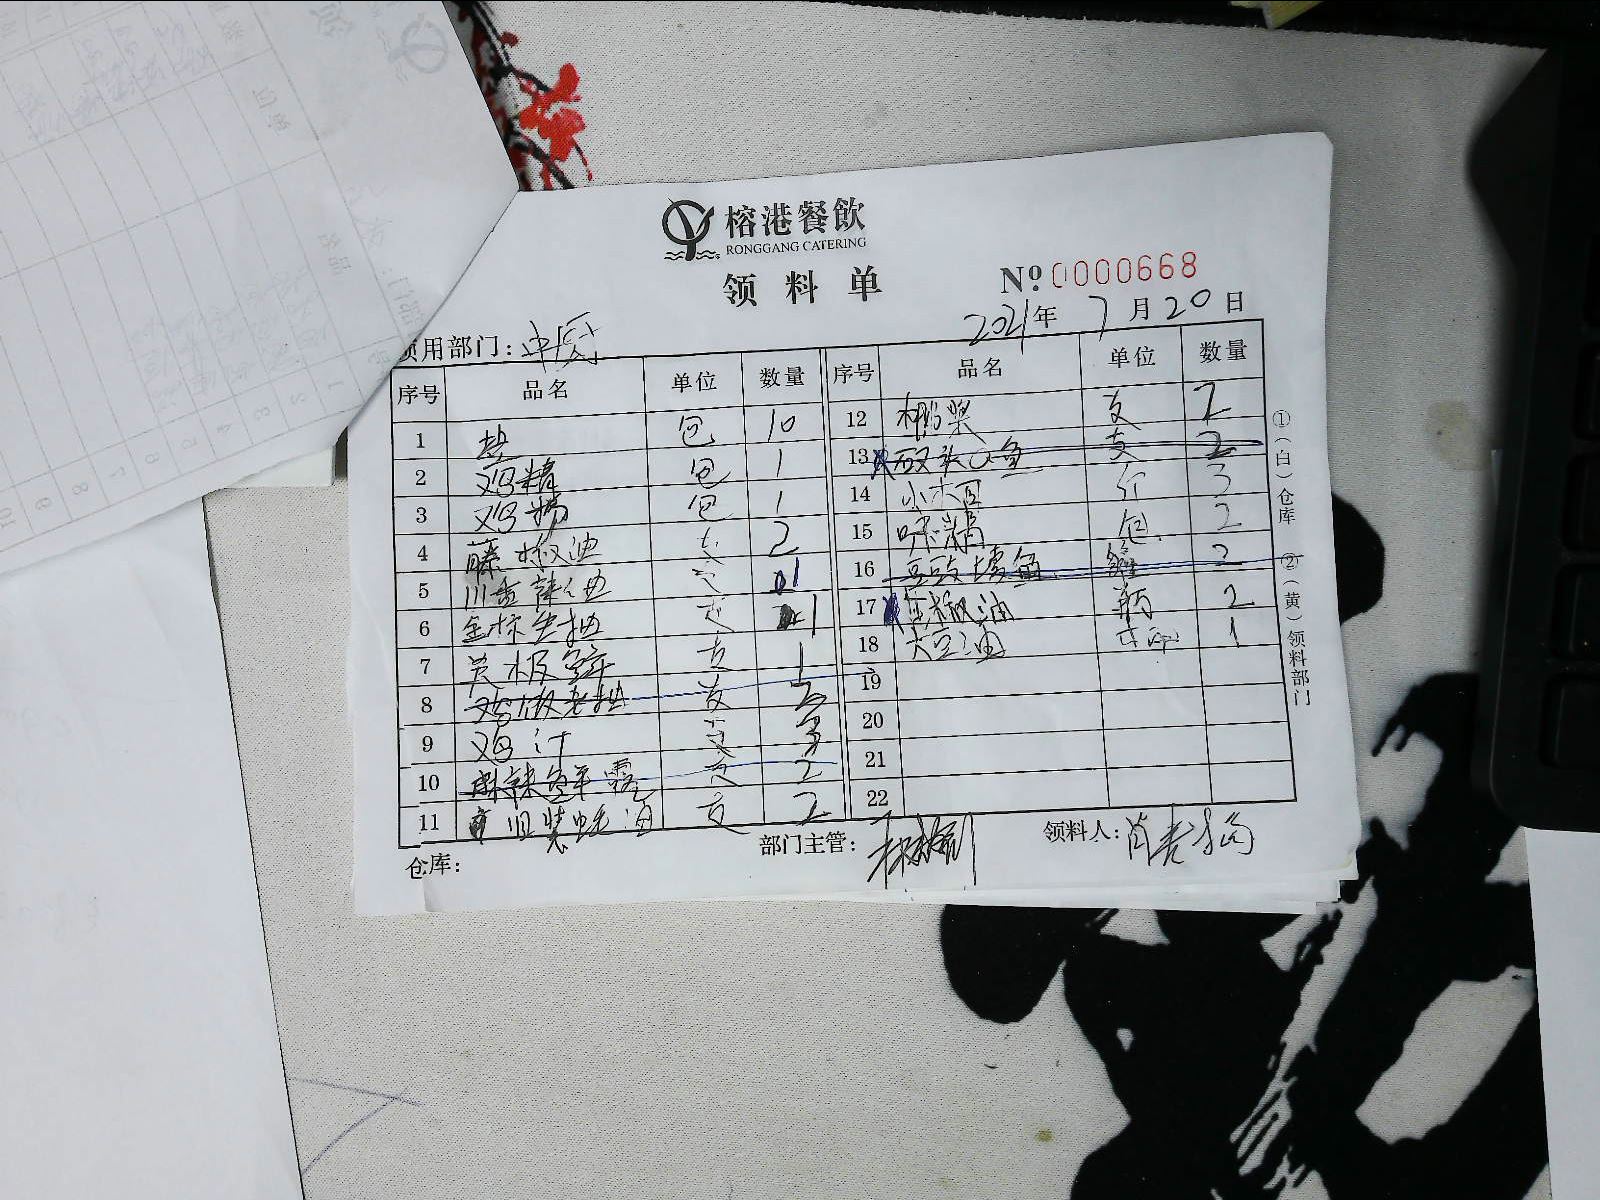 榕港餐飲
RONGGANG CATERING
领料单
№ 0000668
2021年 7月20日
领用部门：中厨
序号 品名 单位 数量
1 盐 包 10
2 鸡精 包 1
3 鸡粉 包 1
4 藤椒油 支 2
5 川香辣油 支 1
6 金标生抽 支 1
7 美极鲜 支 1
8 老抽 支 2
9 鸡汁 支 3
10 麻辣鲜露 支 2
11 旧装蚝油 支 2
序号 品名 单位 数量
12 支 2
13 双头鱼 支 2
14 小木耳 斤 3
15 味精 包 2
16 豆豉鱼 罐 2
17 椒油 瓶 2
18 大豆油 1
19
20
21
22
仓库：
部门主管：
领料人：肖
①（白）仓库 ②（黄）领料部门